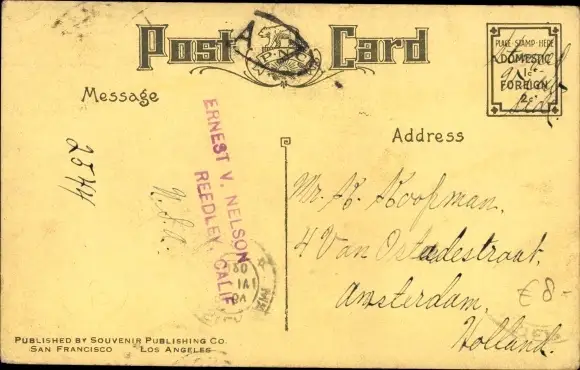 Post Card
PLACE STAMP HERE
DOMESTIC
1¢
FOREIGN
2¢
Message
Address
ERNEST V. NELSON
REEDLEY, CALIF
2544
U.S.A.
Mr. K. Koopman.
4 Van Ostadestraat.
Amsterdam.
Holland.
€8-
PUBLISHED BY SOUVENIR PUBLISHING CO.
SAN FRANCISCO LOS ANGELES